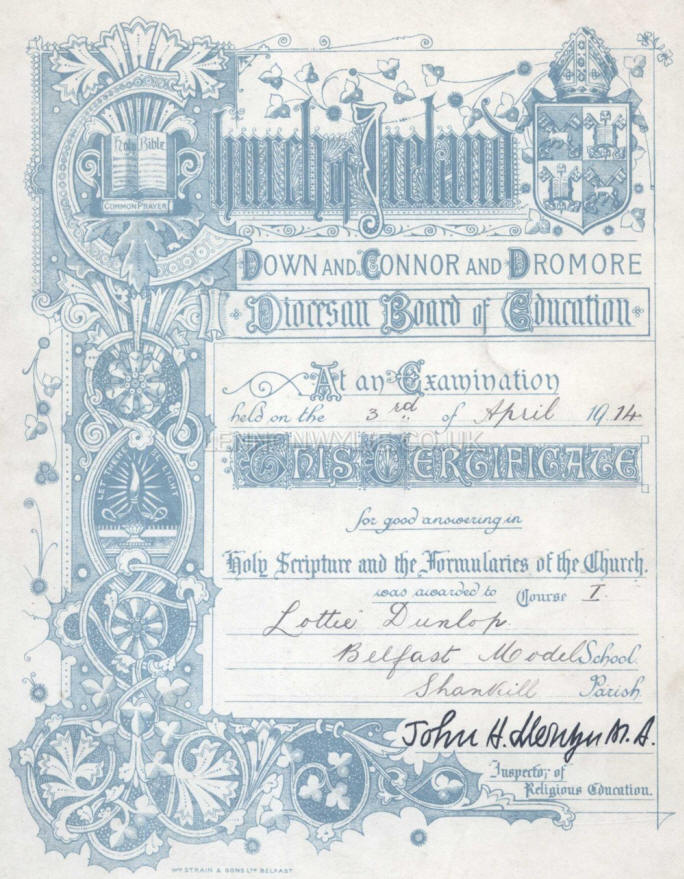 Holy Bible
COMMON PRAYER
Church of Ireland
DOWN AND CONNOR AND DROMORE
Diocesan Board of Education
At an Examination
held on the 3rd of April 1914
LENNONWYLIE.CO.UK
THIS CERTIFICATE
LET THERE LIGHT
for good answering in
Holy Scripture and the Formularies of the Church.
was awarded to Course I.
Lottie Dunlop.
Belfast Model School.
Shankill Parish.
John H. M.A.
Inspector of
Religious Education.
Wm STRAIN & SONS LTD BELFAST